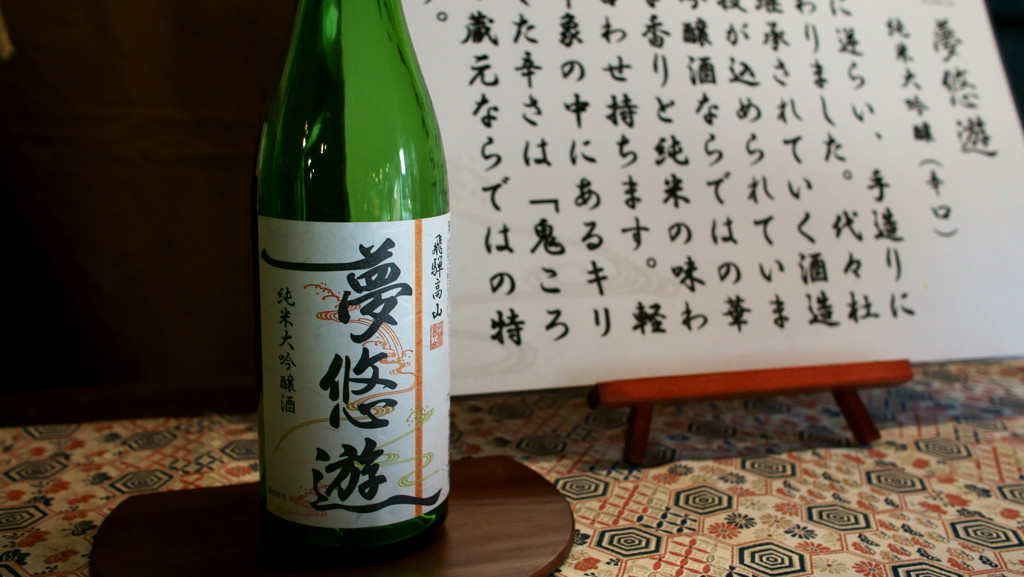 飛騨高山
夢悠遊
純米大吟醸酒
夢悠遊
純米大吟醸(辛口)
に逆らい、手造りに
わりました。代々杜
継承されていく酒造
技が込められていま
吟醸酒ならではの華
香りと純米の味わ
わせ持ちます。軽
象の中にあるキリ
た辛さは「鬼ころ
蔵元ならではの特
。